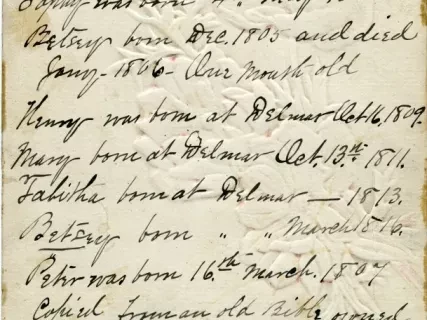 was born
Betsey born Dec. 1805 and died
Jany - 1806 - One Month old
Henry was born at Delmar Oct 16, 1809.
Mary born at Delmar Oct. 13th 1811.
Tabitha born at Delmar — 1813.
Betsey born " " March 1816.
Peter was born 16th March. 1807
Copied from an old Bible owned